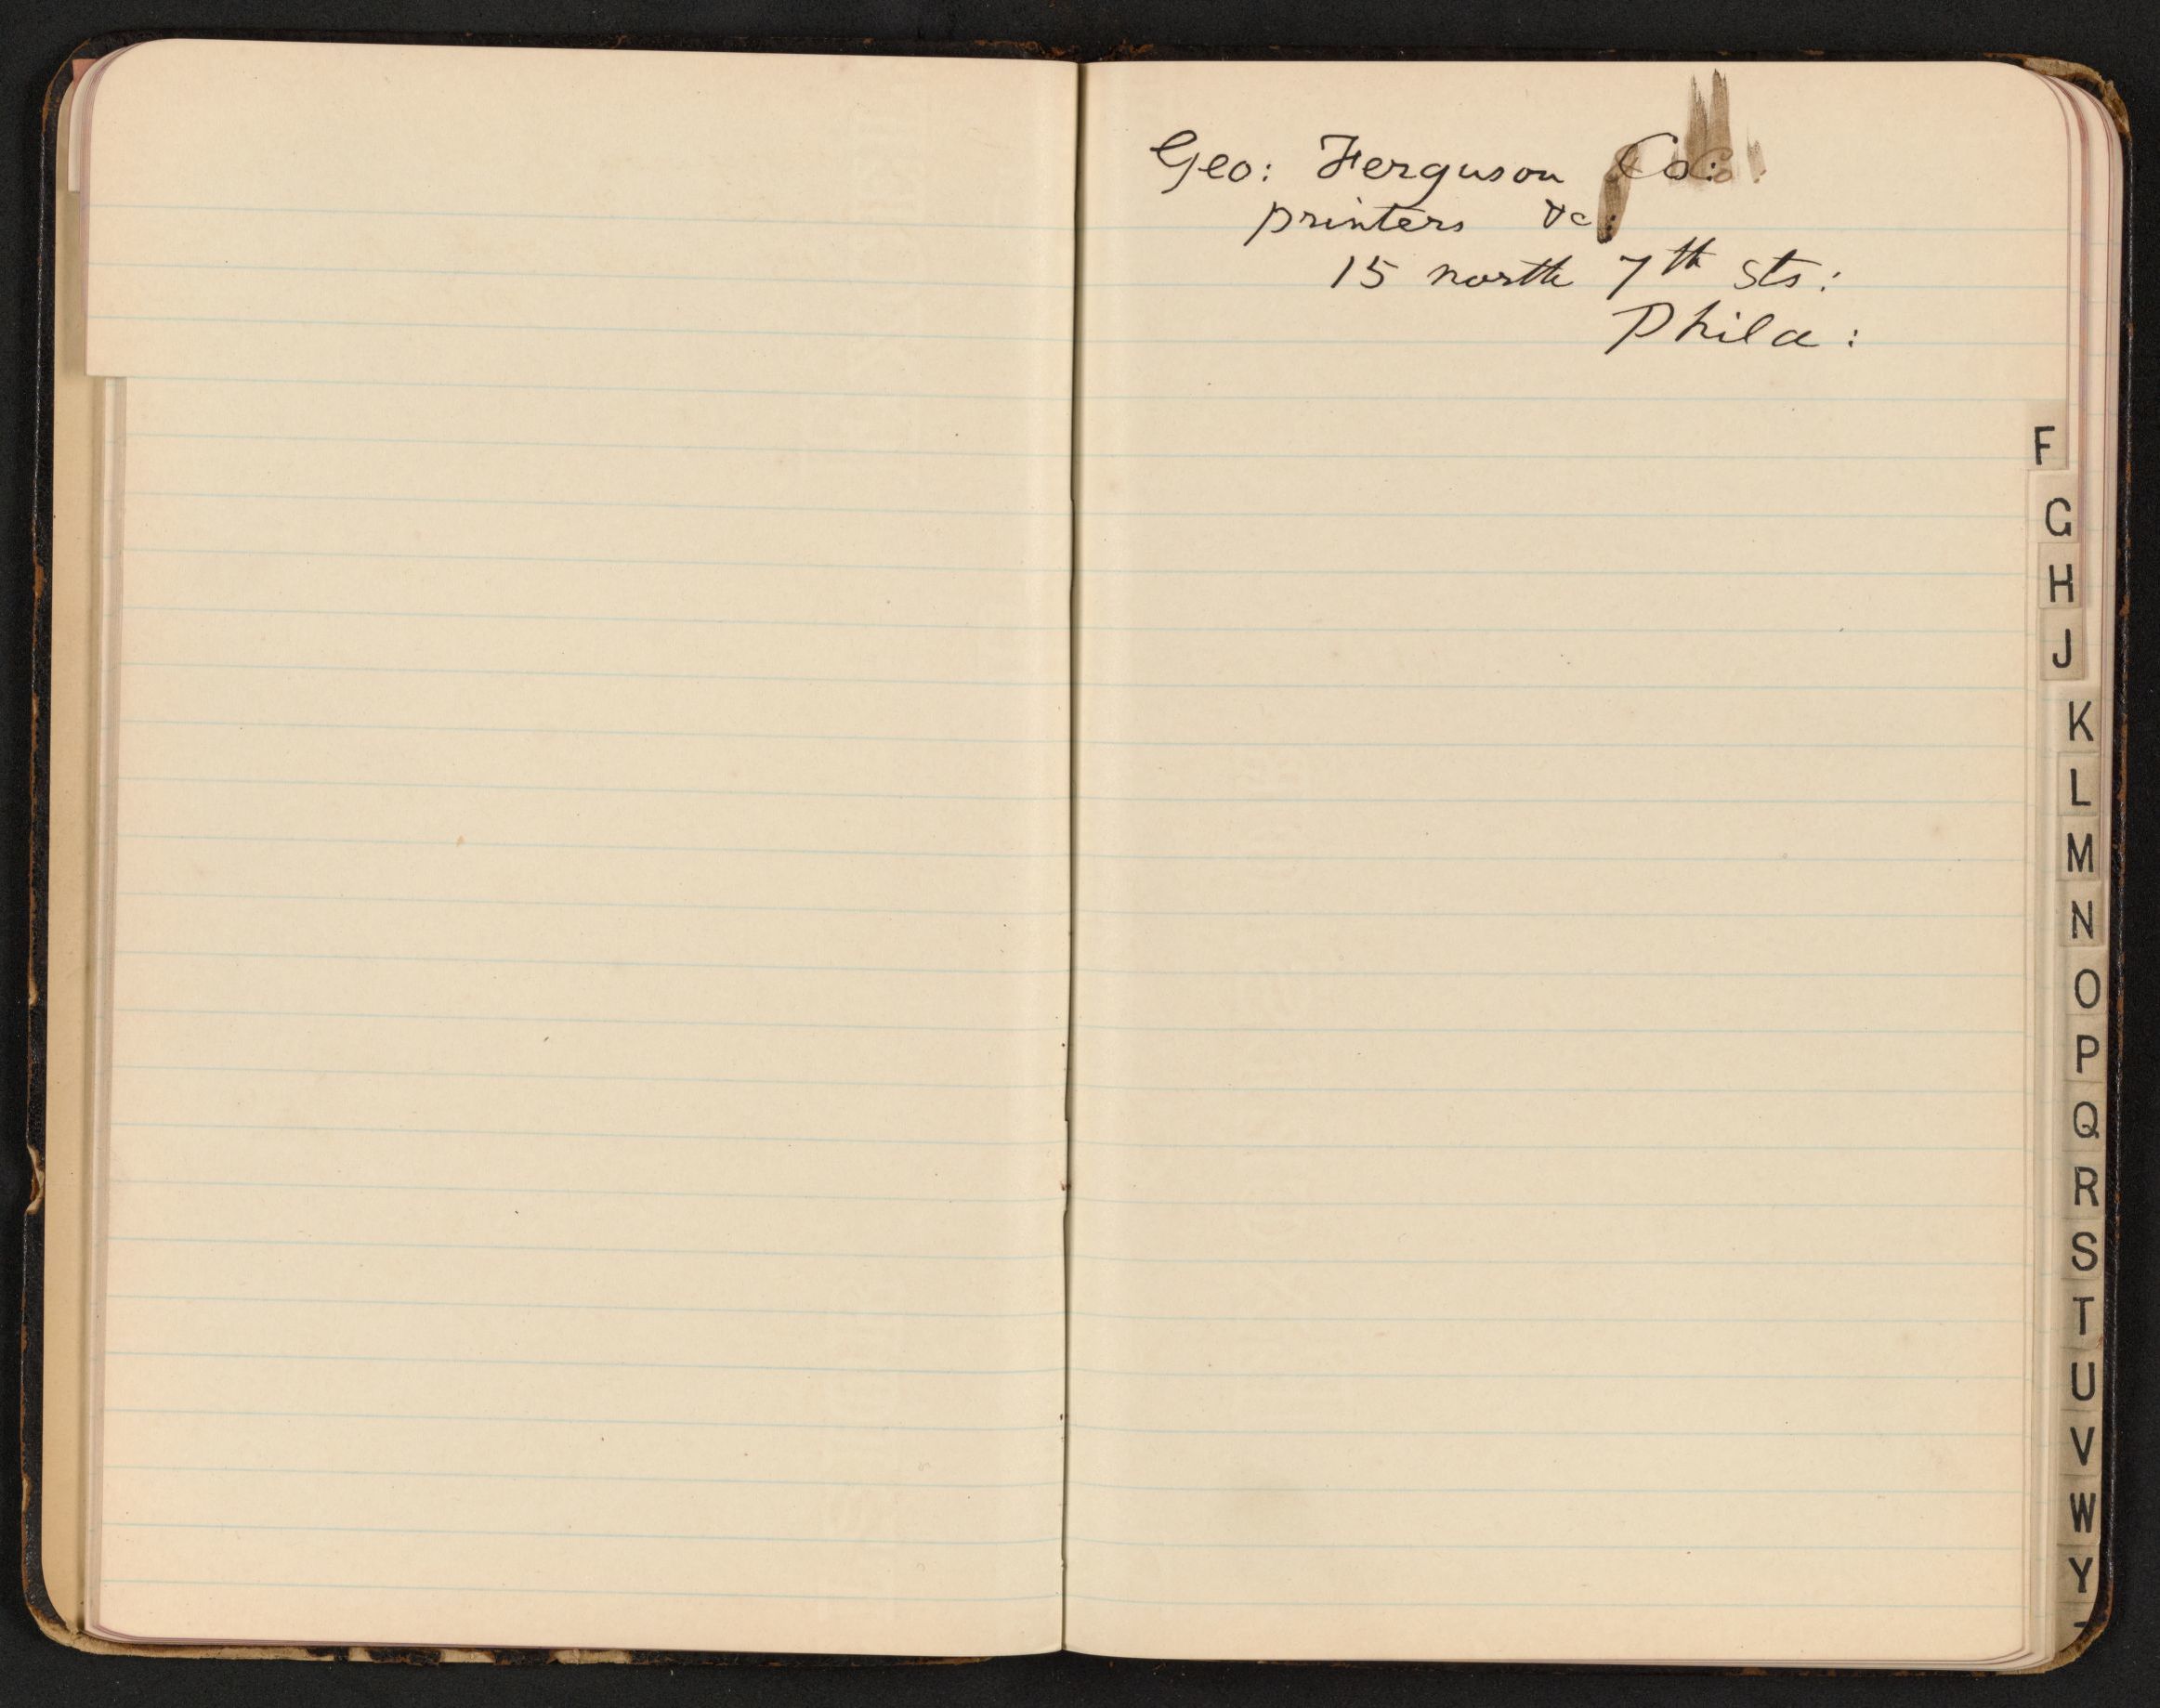 Geo: Ferguson Co:
printers &c:
15 north 7th sts:
Phila:
F
G
H
J
K
L
M
N
O
P
Q
R
S
T
U
V
W
Y